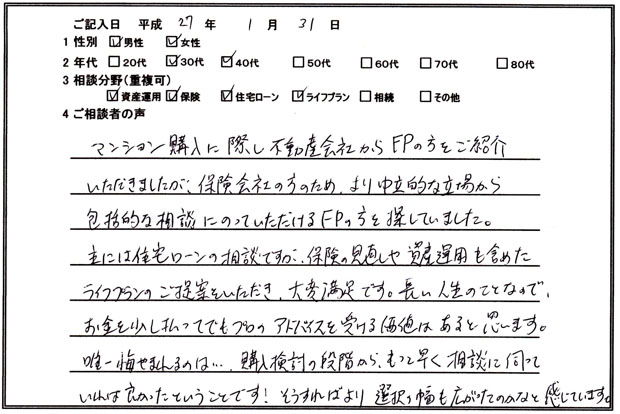 ご記入日 平成 27 年 1 月 31 日
1 性別 ☑男性 ☑女性
2 年代 □20代 ☑30代 ☑40代 □50代 □60代 □70代 □80代
3 相談分野(重複可)
☑資産運用 ☑保険 ☑住宅ローン ☑ライフプラン □相続 □その他
4 ご相談者の声
マンション購入に際し不動産会社からFPの方をご紹介
いただきましたが、保険会社の方のため、より中立的な立場から
包括的な相談にのっていただけるFPの方を探していました。
主には住宅ローンの相談ですが、保険の見直しや資産運用も含めた
ライフプランのご提案をいただき、大変満足です。長い人生のことなので、
お金を少し払ってでもプロのアドバイスを受ける価値はあると思います。
唯一悔やまれるのは…、購入検討の段階から、もっと早く相談に伺って
いれば良かったということです!そうすればより選択の幅も広がったのかなと感じています。